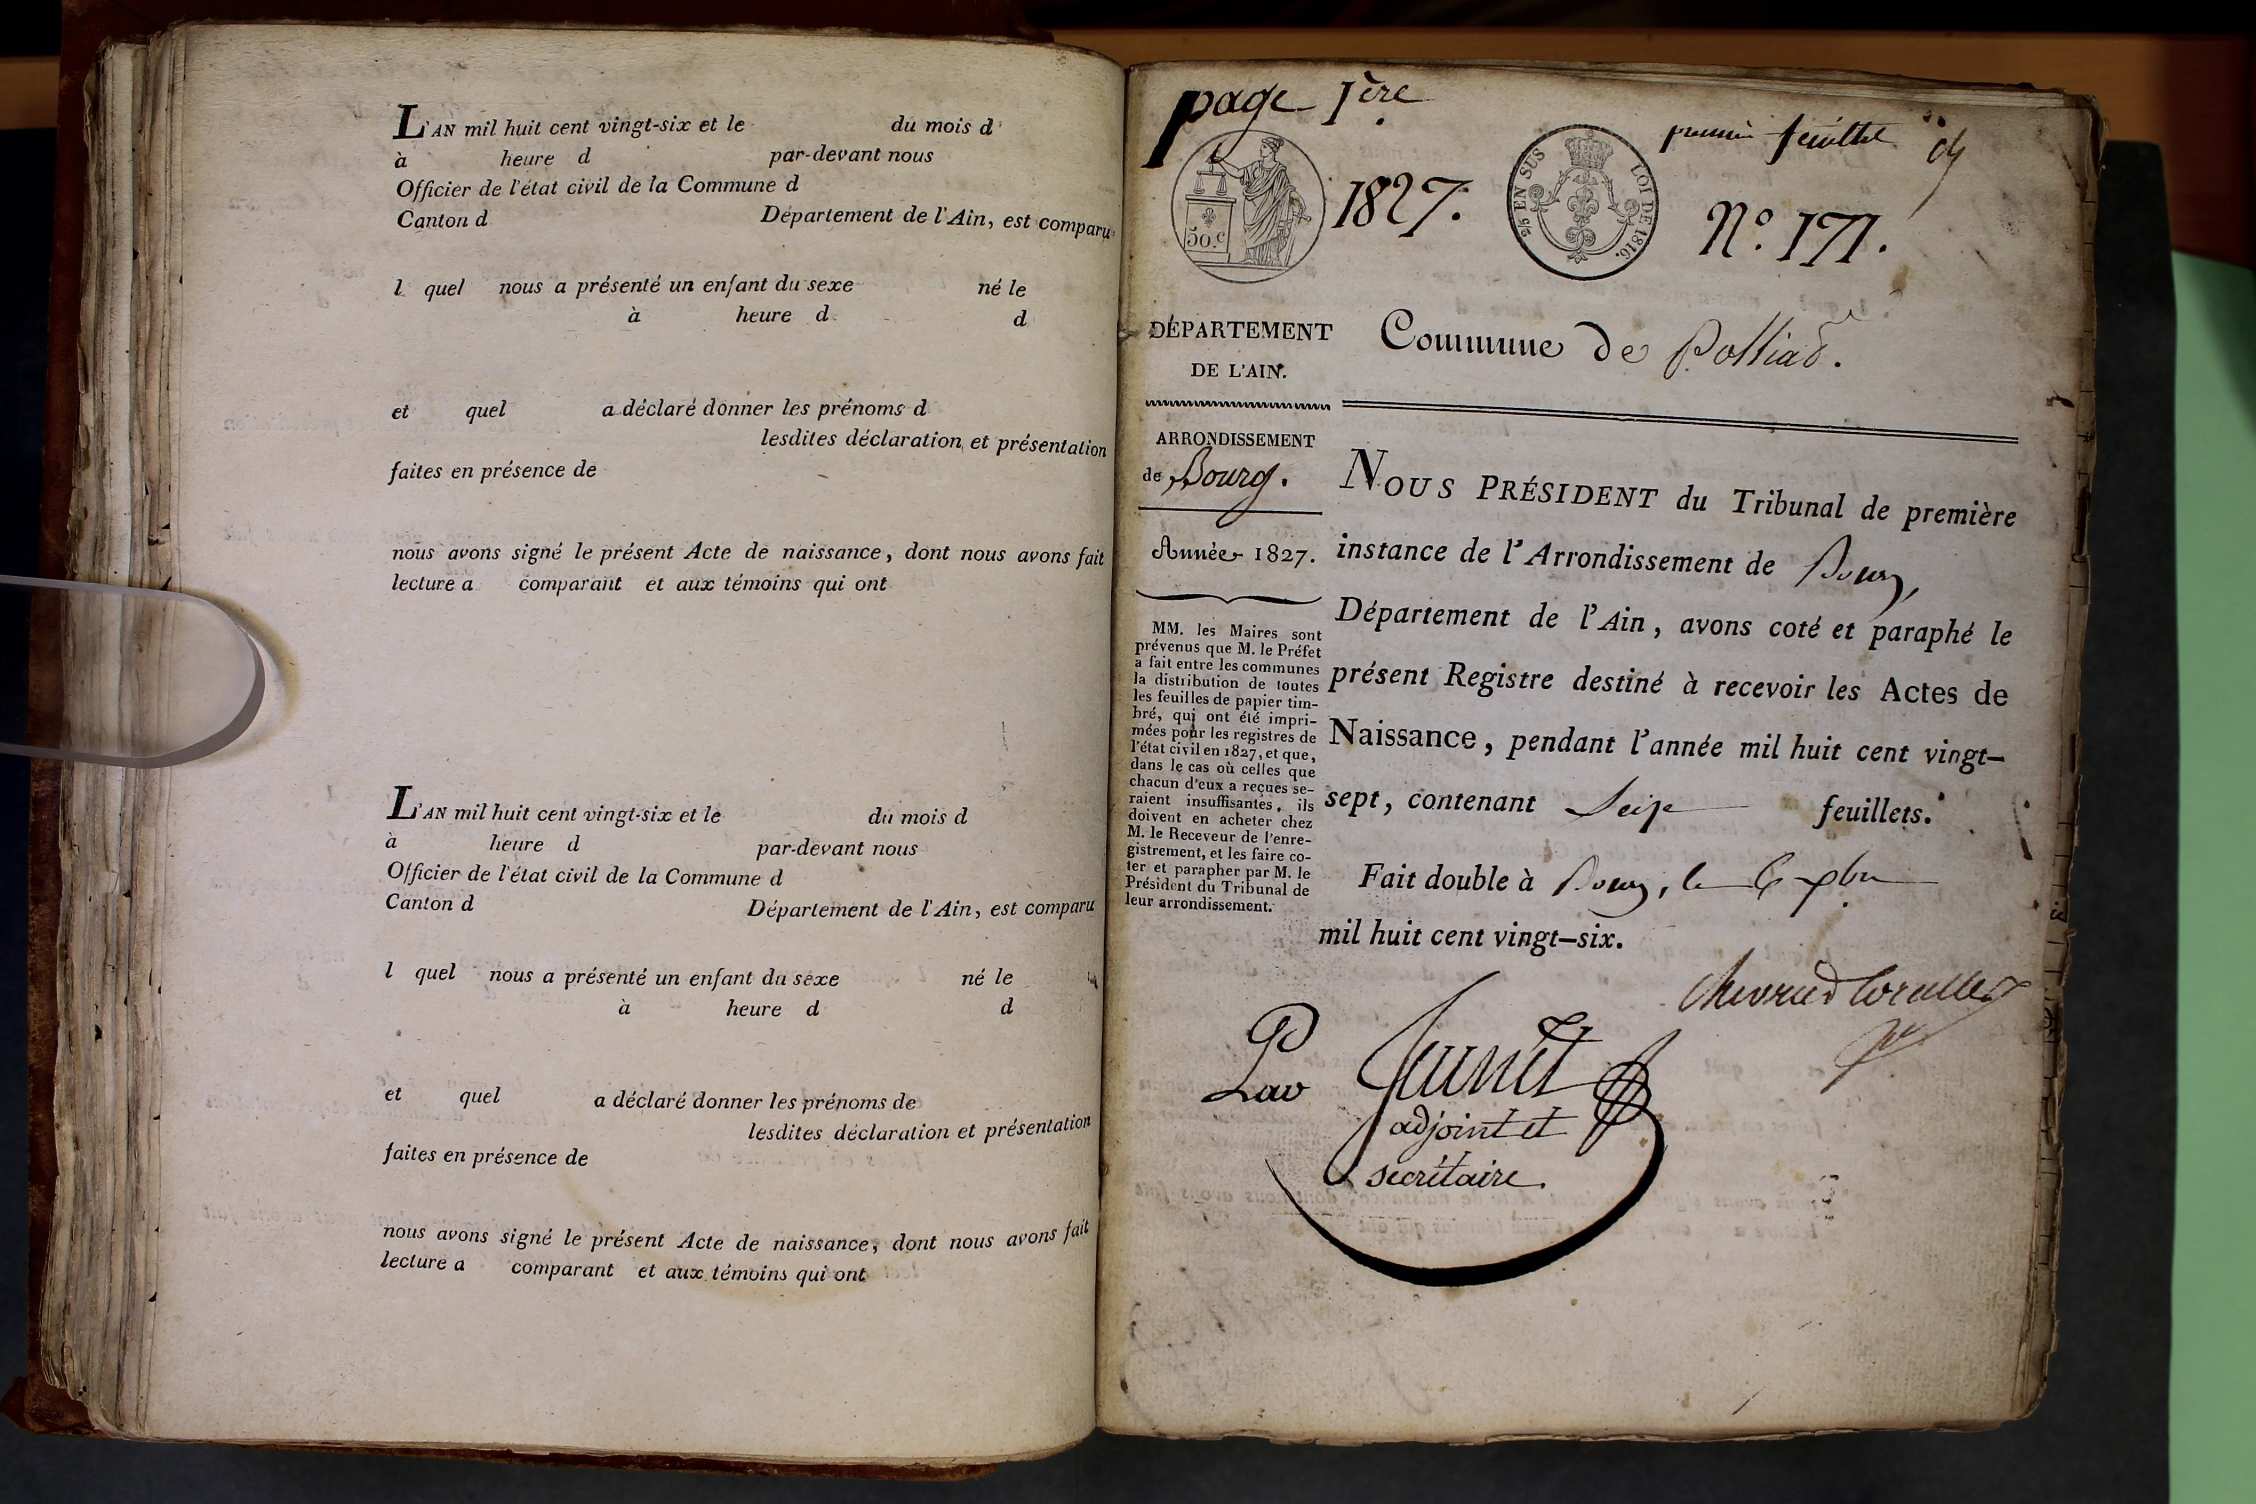 L'AN mil huit cent vingt-six et le du mois d
à heure d par-devant nous
Officier de l'état civil de la Commune d
Canton d Département de l'Ain, est comparu
l quel nous a présenté un enfant du sexe né le
à heure d d
et quel a déclaré donner les prénoms d
lesdites déclaration et présentation
faites en présence de
nous avons signé le présent Acte de naissance, dont nous avons fait
lecture a comparant et aux témoins qui ont
L'AN mil huit cent vingt-six et le du mois d
à heure d par-devant nous
Officier de l'état civil de la Commune d
Canton d Département de l'Ain, est comparu
l quel nous a présenté un enfant du sexe né le
à heure d d
et quel a déclaré donner les prénoms de
lesdites déclaration et présentation
faites en présence de
nous avons signé le présent Acte de naissance, dont nous avons fait
lecture a comparant et aux témoins qui ont
page 1ère
premier feuillet
50.c
1827.
2/5 EN SUS LOI DE 1816.
N.º 171.
DÉPARTEMENT
DE L'AIN.
Commune de Polliad.
ARRONDISSEMENT
de Bourg.
Année 1827.
MM. les Maires sont
prévenus que M. le Préfet
a fait entre les communes
la distribution de toutes
les feuilles de papier tim-
bré, qui ont été impri-
mées pour les registres de
l'état civil en 1827, et que,
dans le cas où celles que
chacun d'eux a reçues se-
raient insuffisantes, ils
doivent en acheter chez
M. le Receveur de l'enre-
gistrement, et les faire co-
ter et parapher par M. le
Président du Tribunal de
leur arrondissement.
NOUS PRÉSIDENT du Tribunal de première
instance de l'Arrondissement de Bourg,
Département de l'Ain, avons coté et paraphé le
présent Registre destiné à recevoir les Actes de
Naissance, pendant l'année mil huit cent vingt-
sept, contenant Seize feuillets.
Fait double à Bourg, le 6 xbre
mil huit cent vingt-six.
Par
adjoint et
secrétaire.